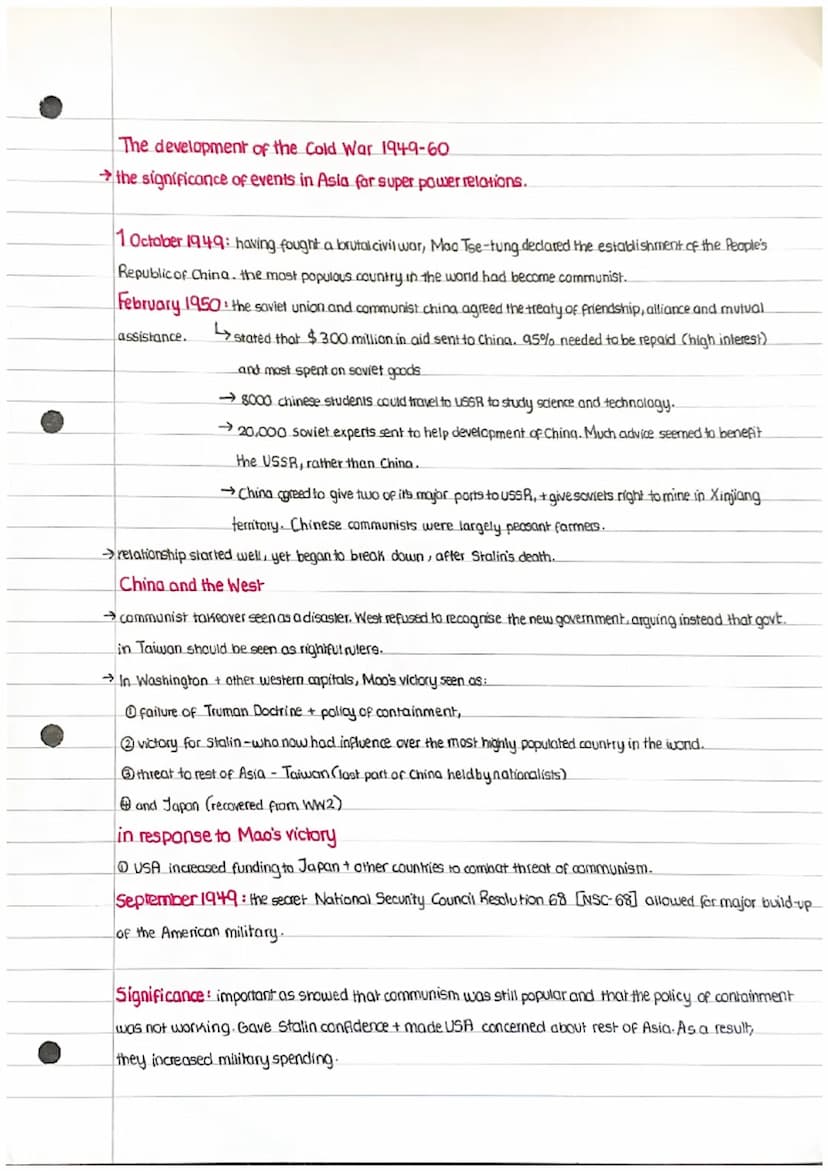 The development of the Cold War 1949-60
→ the significance of events in Asia for super power relations.
1 October 1949: having fought a brutal civil war, Mao Tse-tung declared the establishment of the People's
Republic of China. the most populous country in the world had become communist.
February 1950: the soviet union and communist china agreed the treaty of friendship, alliance and mutual
assistance. ↳ stated that $300 million in aid sent to China. 95% needed to be repaid (high interest)
and most spent on soviet goods
→ 8000 chinese students could travel to USSR to study science and technology.
→ 20,000 soviet experts sent to help development of China. Much advice seemed to benefit
the USSR, rather than China.
→ China agreed to give two of its major ports to USSR, + give soviets right to mine in Xinjiang
territory. Chinese communists were largely peasant farmers.
→ relationship started well, yet began to break down, after Stalin's death.
China and the West
→ communist takeover seen as a disaster. West refused to recognise the new government, arguing instead that govt.
in Taiwan should be seen as rightful rulers.
→ In Washington + other western capitals, Mao's victory seen as:
① failure of Truman Doctrine + policy of containment,
② victory for Stalin - who now had influence over the most highly populated country in the world.
③ threat to rest of Asia - Taiwan (last part of China held by nationalists)
④ and Japan (recovered from WW2)
in response to Mao's victory
① USA increased funding to Japan + other countries to combat threat of communism.
September 1949: the secret National Security Council Resolution 68 [NSC-68] allowed for major build-up
of the American military.
Significance: important as showed that communism was still popular and that the policy of containment
was not working. Gave Stalin confidence + made USA concerned about rest of Asia. As a result,
they increased military spending.